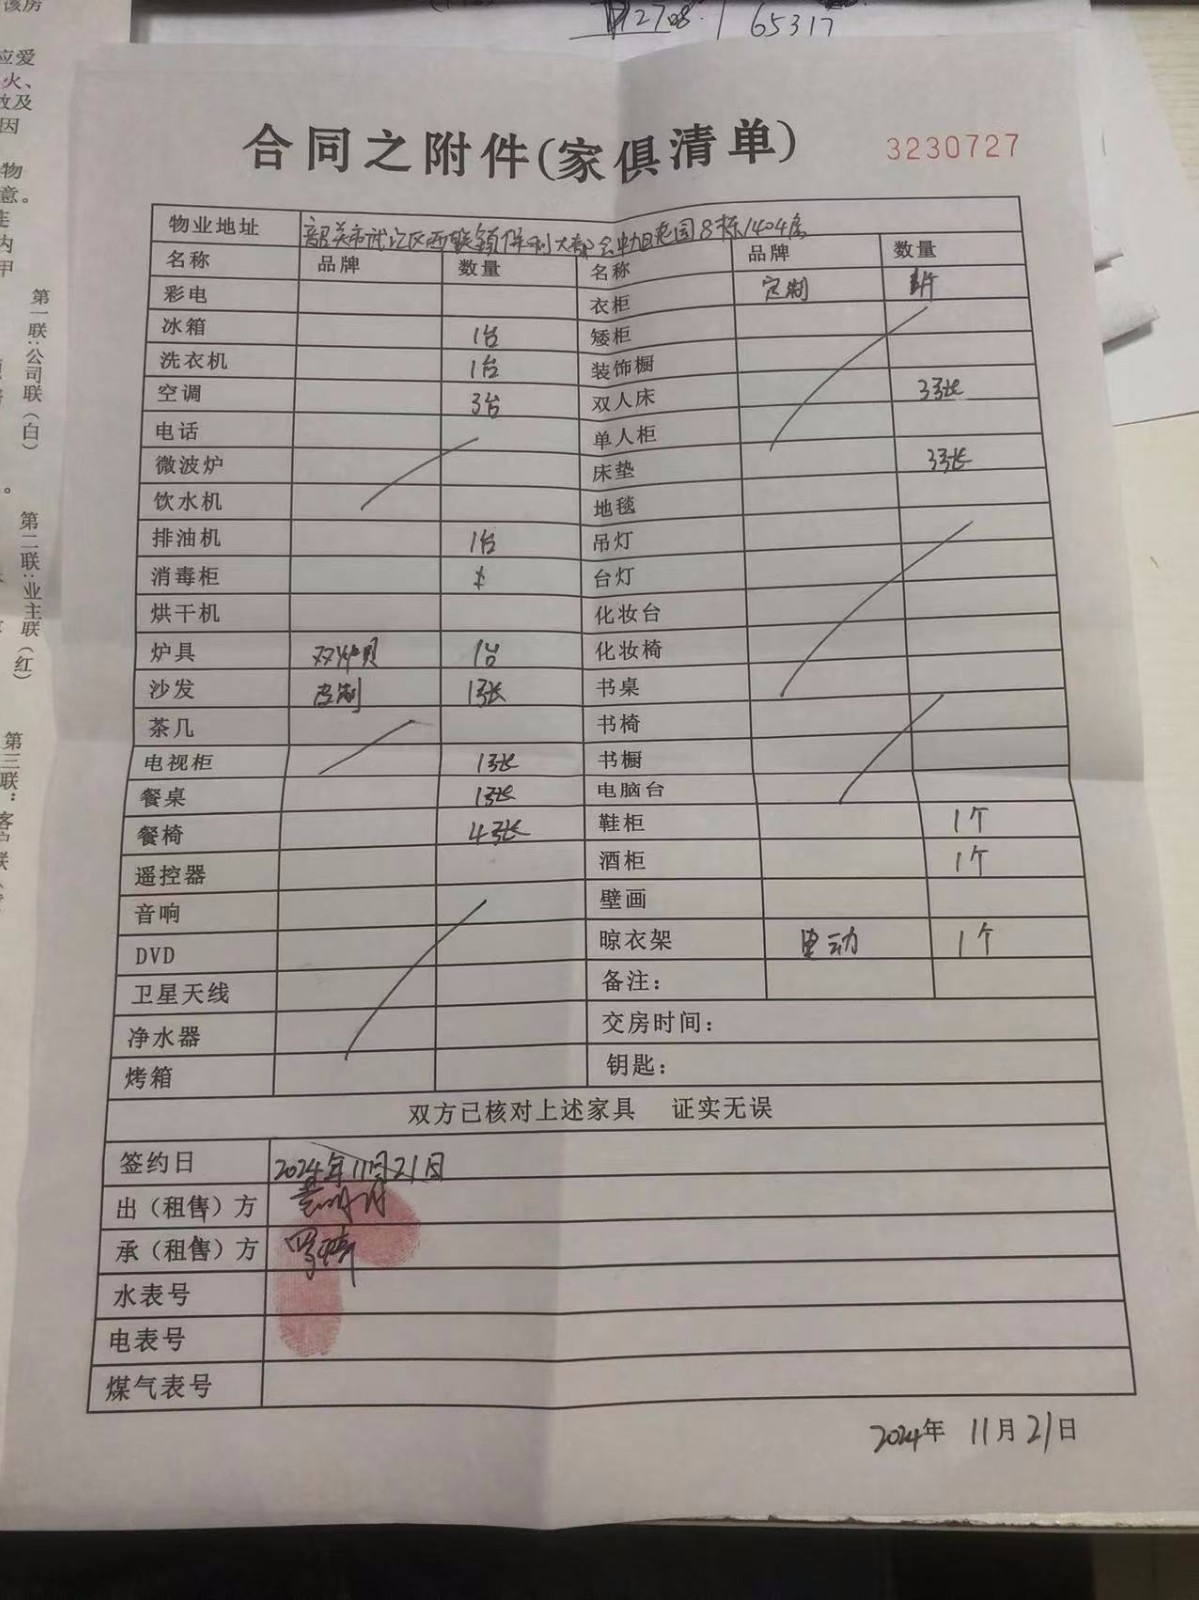 2708. 65317
该房
应爱
火、
效及
因
物
意。
内
甲
第一联:公司联(白)
第二联:业主联(红)
第三联:客户联
合同之附件(家俱清单) 3230727
物业地址 韶关市武江区西联镇保利大都会 花园8栋1404房
名称 品牌 数量 名称 品牌 数量
彩电 衣柜 定制
冰箱 1台 矮柜
洗衣机 1台 装饰橱
空调 3台 双人床 3张
电话 单人柜
微波炉 床垫 3张
饮水机 地毯
排油机 1台 吊灯
消毒柜 台灯
烘干机 化妆台
炉具 双炉具 1台 化妆椅
沙发 皮制 1张 书桌
茶几 书椅
电视柜 1张 书橱
餐桌 1张 电脑台
餐椅 4张 鞋柜 1个
遥控器 酒柜 1个
音响 壁画
DVD 晾衣架 电动 1个
卫星天线 备注:
净水器 交房时间:
烤箱 钥匙:
双方已核对上述家具 证实无误
签约日 2024年11月21日
出(租售)方
承(租售)方
水表号
电表号
煤气表号
2024年 11月21日